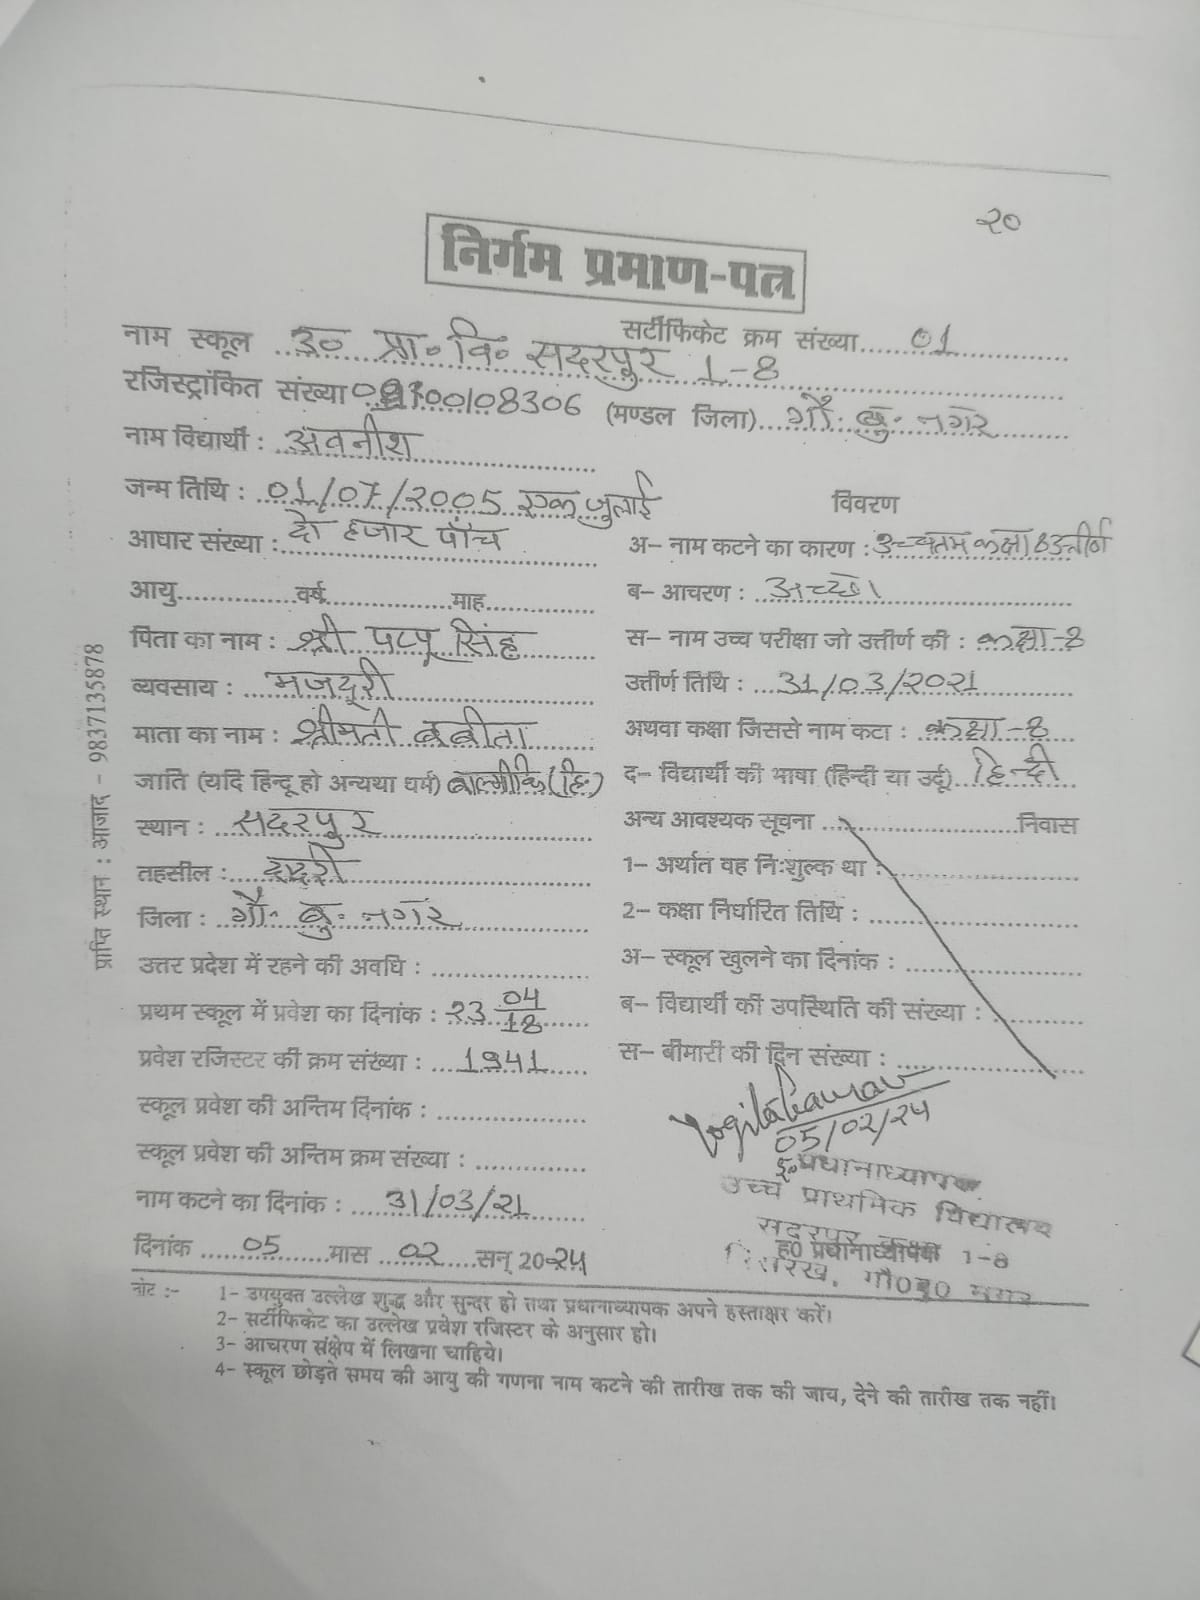 २०
निर्गम प्रमाण-पत्र
सर्टीफिकेट क्रम संख्या..... 01
नाम स्कूल ...उ० प्रा० वि० सदरपुर 1-8
रजिस्ट्रांकित संख्या 00108306 (मण्डल जिला)....गौ. बु. नगर
नाम विद्यार्थी : अवनीश
जन्म तिथि : 01/07/2005 एक जुलाई
विवरण
आधार संख्या : दो हजार पाँच
अ– नाम कटने का कारण : उच्चतम कक्षा 8 उत्तीर्ण
आयु...............वर्ष...............माह...............
ब– आचरण : अच्छा
पिता का नाम : श्री पप्पू सिंह
स– नाम उच्च परीक्षा जो उत्तीर्ण की : कक्षा-8
व्यवसाय : मजदूरी
उत्तीर्ण तिथि : 31/03/2021
माता का नाम : श्रीमती बबीता
अथवा कक्षा जिससे नाम कटा : कक्षा-8
जाति (यदि हिन्दू हो अन्यथा धर्म) बाल्मीकि (हि.)
द– विद्यार्थी की भाषा (हिन्दी या उर्दू).. हिन्दी
स्थान : सदरपुर
अन्य आवश्यक सूचना ..............................निवास
तहसील : दादरी
1– अर्थात वह निःशुल्क था :
जिला : गौ. बु. नगर
2– कक्षा निर्धारित तिथि :
उत्तर प्रदेश में रहने की अवधि :
अ– स्कूल खुलने का दिनांक :
प्रथम स्कूल में प्रवेश का दिनांक : 23 04/18
ब– विद्यार्थी की उपस्थिति की संख्या :
प्रवेश रजिस्टर की क्रम संख्या : 1941
स– बीमारी की दिन संख्या :
स्कूल प्रवेश की अन्तिम दिनांक :
05/02/24
स्कूल प्रवेश की अन्तिम क्रम संख्या :
इ० प्रधानाध्यापक
नाम कटने का दिनांक : 31/03/21
उच्च प्राथमिक विद्यालय
सदरपुर
दिनांक ...05...मास ...02...सन् 2024
ह0 प्रधानाध्यापक 1-8
गौ0बु0 नगर
नोट :- 1- उपयुक्त उल्लेख शुद्ध और सुन्दर हो तथा प्रधानाध्यापक अपने हस्ताक्षर करें।
2- सर्टीफिकेट का उल्लेख प्रवेश रजिस्टर के अनुसार हो।
3- आचरण संक्षेप में लिखना चाहिये।
4- स्कूल छोड़ते समय की आयु की गणना नाम कटने की तारीख तक की जाय, देने की तारीख तक नहीं।
प्राप्ति स्थान : आजाद - 9837135878